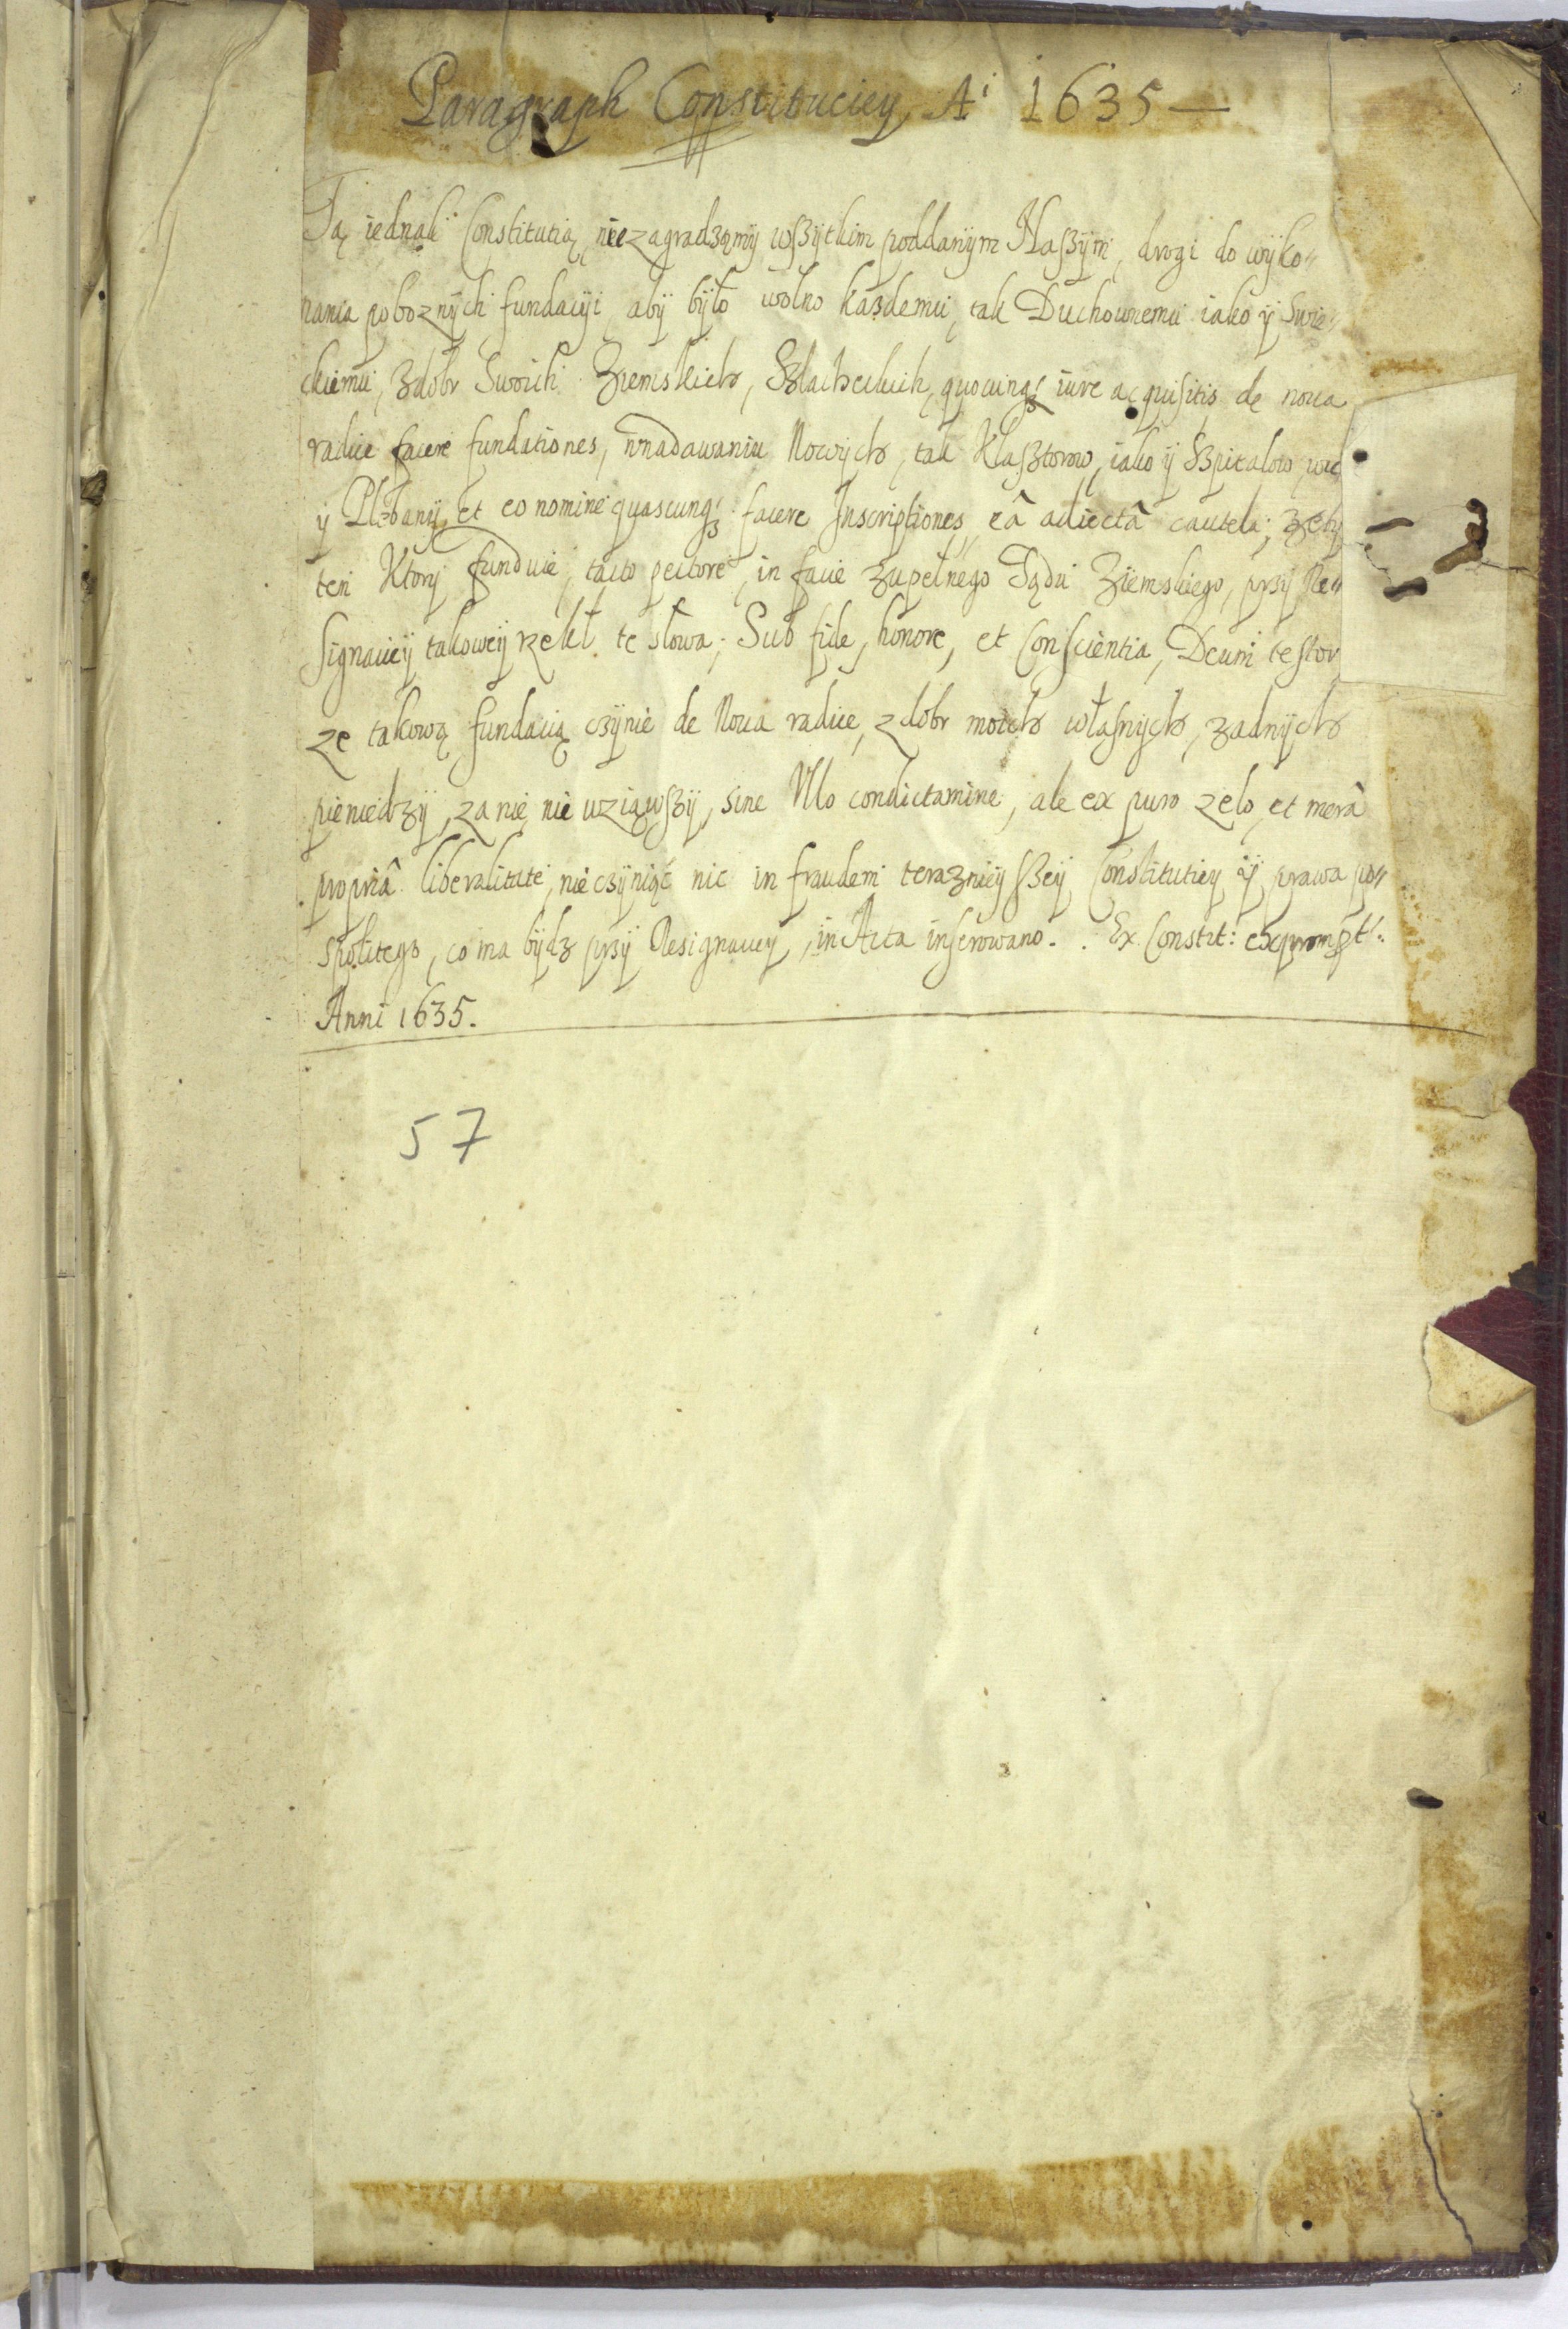 Paragraph Constituciey Aⁱ 1635 —
Tą iednak Constitutią, niezagradząmÿ wszÿtkim poddanÿm Naszÿm, drogi do wÿko„
nania poboznÿch fundacÿi, abÿ bÿło wolno każdemu, tak Duchownemu iako ÿ Swie„
ckiemu, z dobr Swoich Ziemskich, Szlacheckich, quocunqꝫ iure acquisitis de noua
radice facere fundationes, w nadawaniu Nowÿch, tak Klasztorow, iako ÿ Szpitalow,
ÿ Plebanÿ, et eo nomine quascunqꝫ facere Inscriptiones, eâ adiectâ cautela; zebÿ
ten Ktorÿ funduie, tacto pectore, in facie zupełnego Sądu Ziemskiego, przÿ Re„
signaciÿ takoweÿ rzekł te słowa; Sub fide, honore, et Conscientia, Deum testor
ze takową fundacią czÿnie de Noua radice, z dobr moich własnÿch, zadnÿch
pieniedzÿ, za nię nie wziąwszÿ, sine Ullo condictamine, ale ex puro zelo, et merâ
propriâ liberalitate, nie czÿniąc nic in fraudem teraznieÿszeÿ Constitutieÿ ÿ prawa po„
spolitego, co ma bÿdz przÿ Resignaceÿ, in Acta inserowano. Ex Constit: exprompt:
Anni 1635.
57